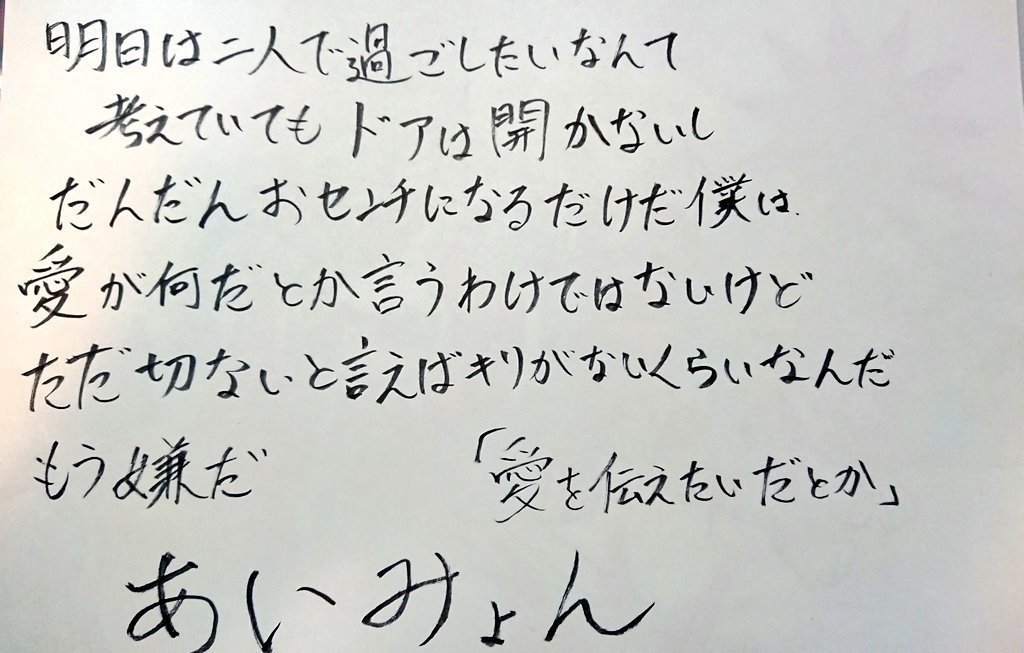 明日は二人で過ごしたいなんて
考えていてもドアは開かないし
だんだんおセンチになるだけだ僕は
愛が何だとか言うわけではないけど
ただ切ないと言えばキリがないくらいなんだ
もう嫌だ 「愛を伝えたいだとか」
あいみょん